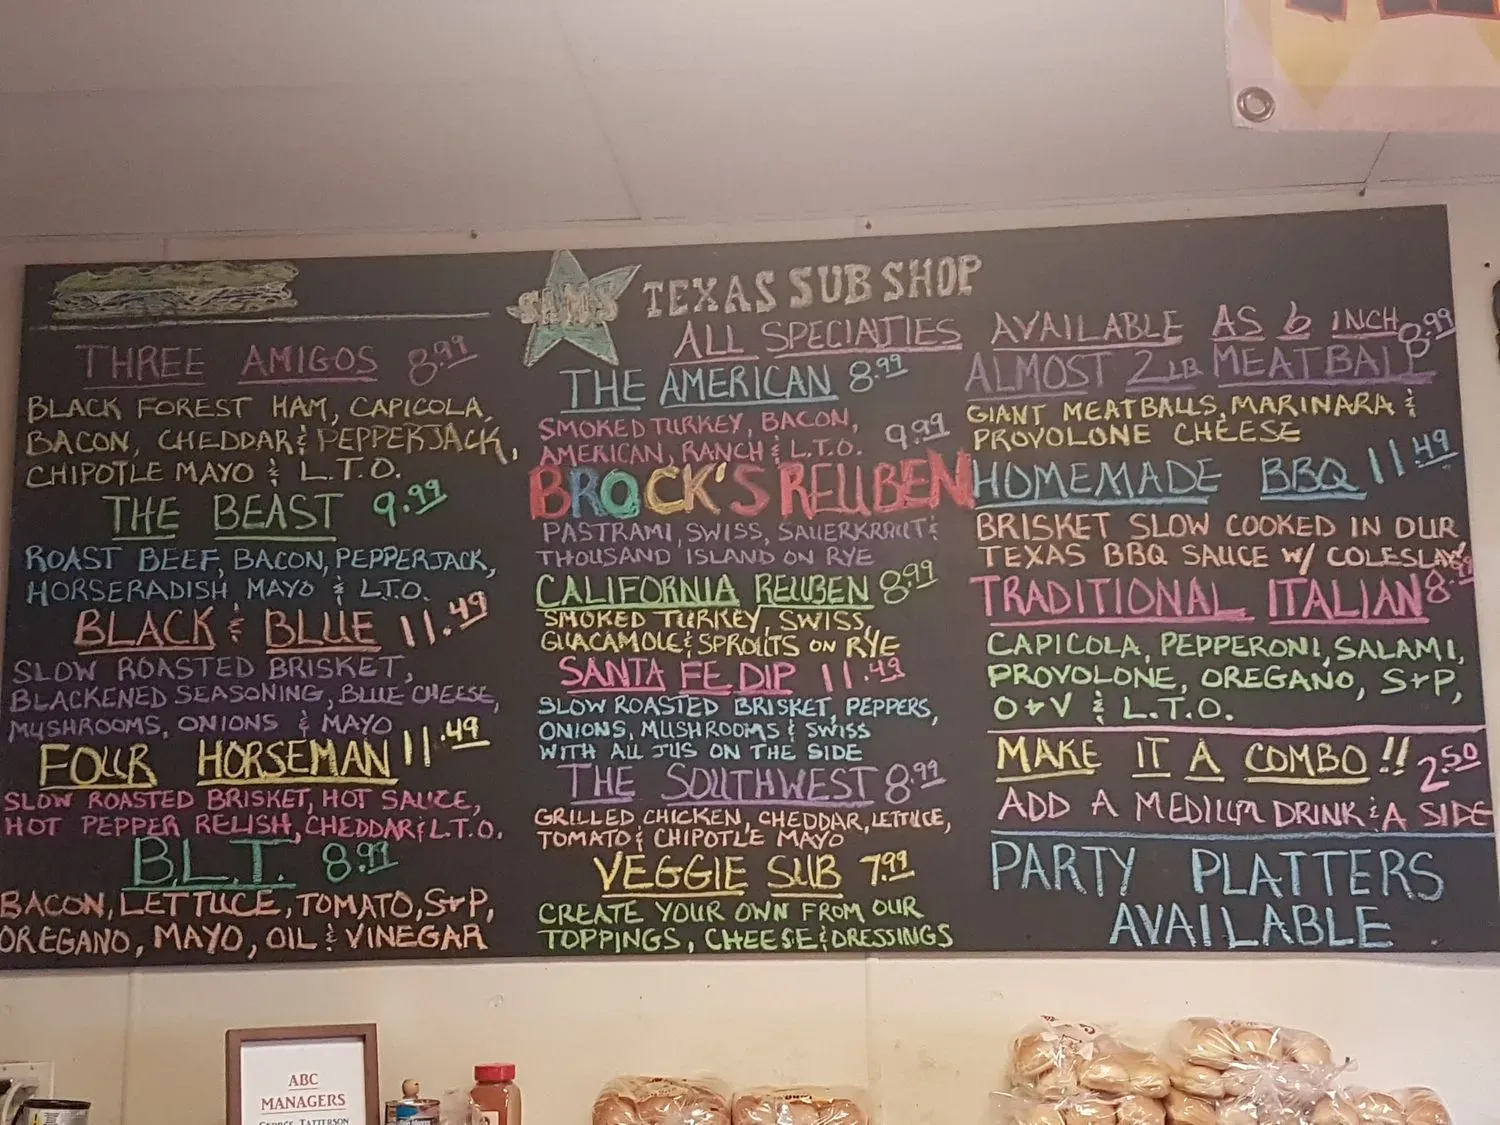 SAMS TEXAS SUB SHOP
ALL SPECIALTIES AVAILABLE AS 6 INCH
THREE AMIGOS 8.99
BLACK FOREST HAM, CAPICOLA,
BACON, CHEDDAR & PEPPERJACK,
CHIPOTLE MAYO & L.T.O.
THE BEAST 9.99
ROAST BEEF, BACON, PEPPERJACK,
HORSERADISH MAYO & L.T.O.
BLACK & BLUE 11.49
SLOW ROASTED BRISKET,
BLACKENED SEASONING, BLUE CHEESE,
MUSHROOMS, ONIONS & MAYO
FOUR HORSEMAN 11.49
SLOW ROASTED BRISKET, HOT SAUCE,
HOT PEPPER RELISH, CHEDDAR & L.T.O.
B.L.T. 8.99
BACON, LETTUCE, TOMATO, S+P,
OREGANO, MAYO, OIL & VINEGAR
THE AMERICAN 8.99
SMOKED TURKEY, BACON,
AMERICAN, RANCH & L.T.O.
BROCK'S REUBEN 9.99
PASTRAMI, SWISS, SAUERKRAUT &
THOUSAND ISLAND ON RYE
CALIFORNIA REUBEN 8.99
SMOKED TURKEY, SWISS,
GUACAMOLE & SPROUTS ON RYE
SANTA FE DIP 11.49
SLOW ROASTED BRISKET, PEPPERS,
ONIONS, MUSHROOMS & SWISS
WITH ALL JUS ON THE SIDE
THE SOUTHWEST 8.99
GRILLED CHICKEN, CHEDDAR, LETTUCE,
TOMATO & CHIPOTLE MAYO
VEGGIE SUB 7.99
CREATE YOUR OWN FROM OUR
TOPPINGS, CHEESE & DRESSINGS
ALMOST 2LB MEATBALL 8.99
GIANT MEATBALLS, MARINARA &
PROVOLONE CHEESE
HOMEMADE BBQ 11.49
BRISKET SLOW COOKED IN OUR
TEXAS BBQ SAUCE W/ COLESLAW
TRADITIONAL ITALIAN 8.99
CAPICOLA, PEPPERONI, SALAMI,
PROVOLONE, OREGANO, S+P,
O+V & L.T.O.
MAKE IT A COMBO!! 2.50
ADD A MEDIUM DRINK & A SIDE
PARTY PLATTERS
AVAILABLE
ABC
MANAGERS
GEORGE TATTERSON